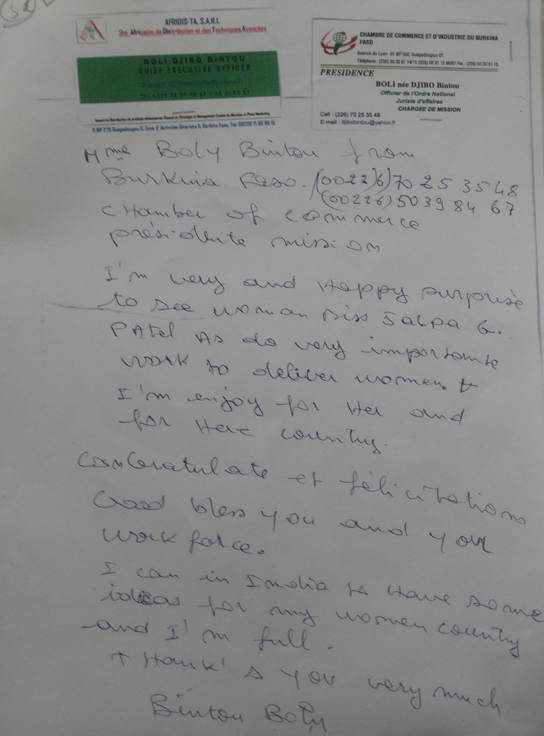 AFRIDIS-TA, S.A.R.L
Sté Africaine de Distribution et des Techniques Avancées
BOLI DJIBO BINTOU
CHIEF EXECUTIVE OFFICER
CHAMBRE DE COMMERCE ET D'INDUSTRIE DU BURKINA
FASO
PRESIDENCE
BOLI née DJIBO Bintou
Officier de l'Ordre National
Juriste d'affaires
CHARGEE DE MISSION
Cell : (226) 70 25 35 48
E-mail : djibobintou@yahoo.fr
Mme Boly Bintou from
Burkina Faso. (00226) 70 25 35 48
(00226) 50 39 84 67
chamber of commerce
présidente mission
I'm very and Happy surprise
to see woman Diss Jalpa G.
PAtel As do very importante
work to deliver women
I'm enjoy for Her and
for Here country.
Congratulate et félicitations
Good bless you and your
work force.
I can in India to Have some
ideas for my women country
and I'm full.
THank's you very much
Bintou Boly